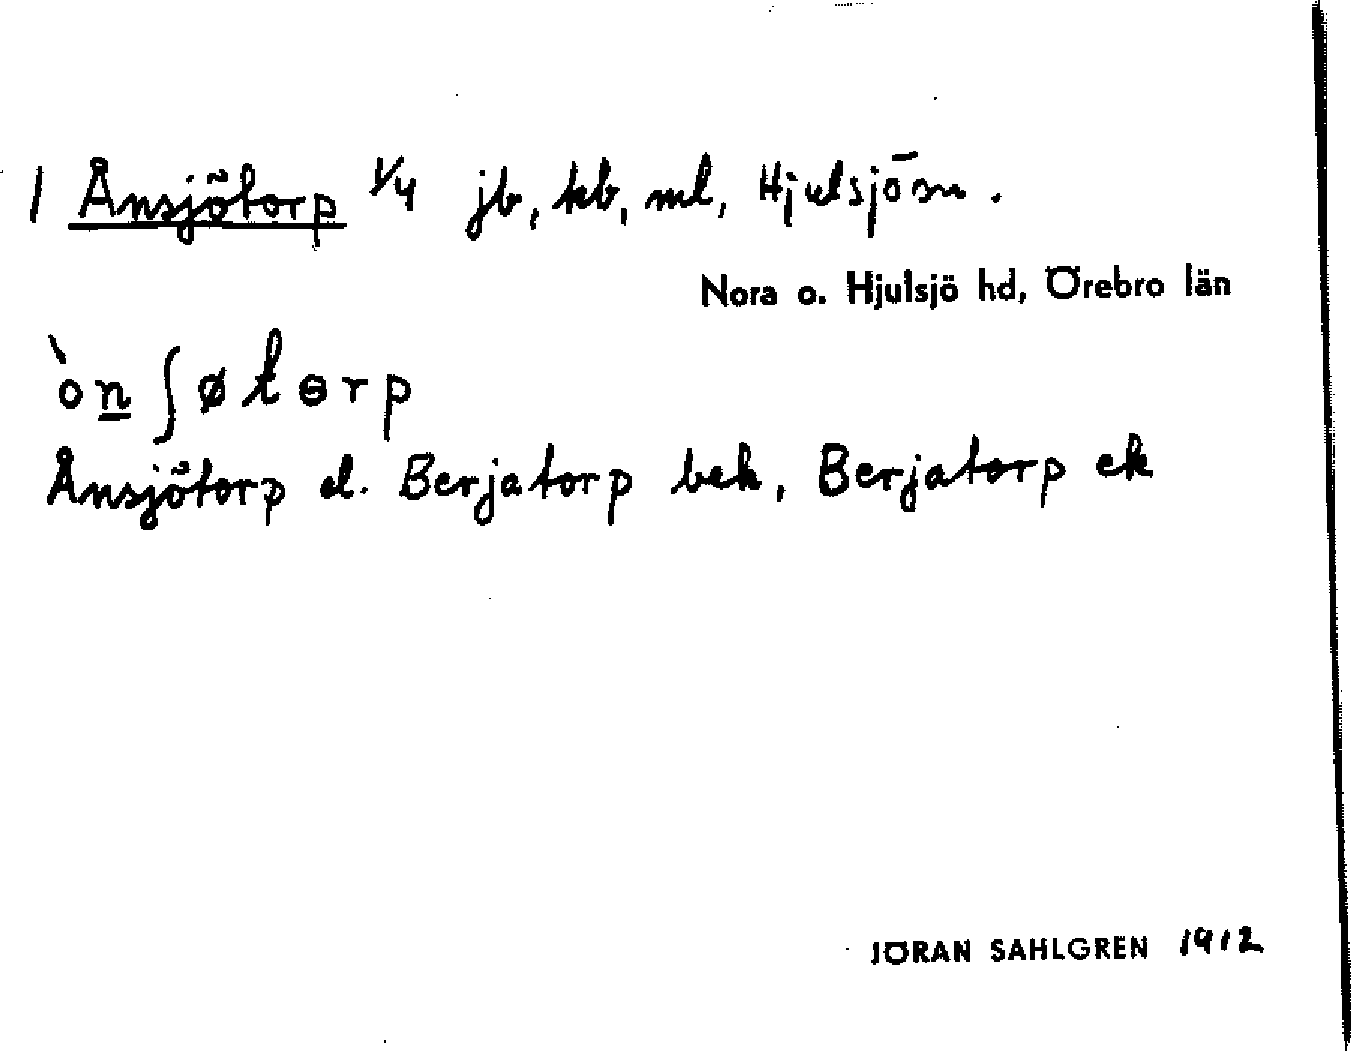 1 Ånsjötorp 1/4 jb, kb, ml, Hjulsjö sn.
Nora o. Hjulsjö hd, Örebro län
`on̲ʃøtɵrp
Ånsjötorp el. Berjatorp bek, Berjatorp ek
JÖRAN SAHLGREN 1912